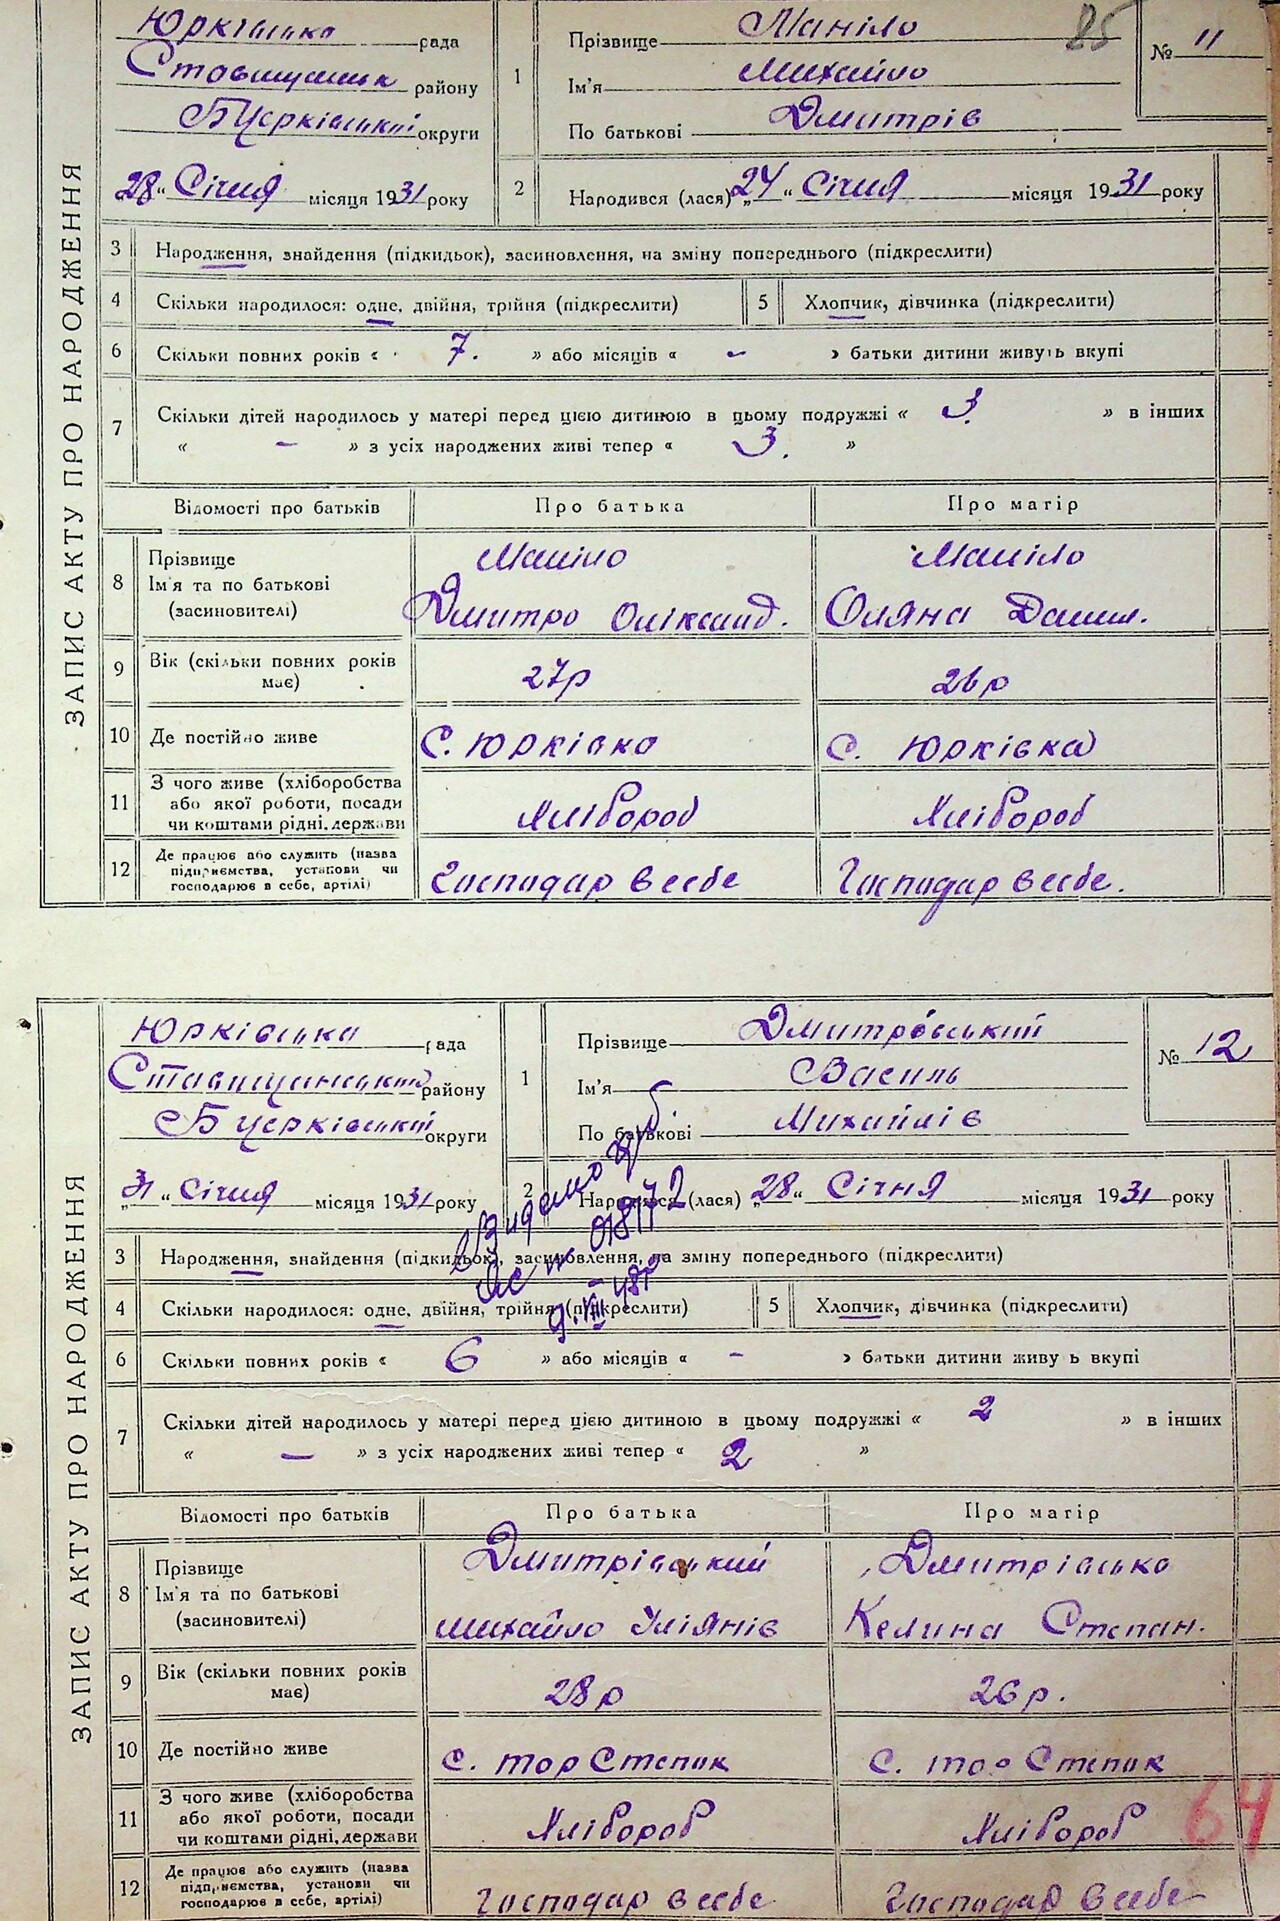 85
Юрківська рада
Ставищанськ району
БЦерківської округи
„28“ Січня місяця 1931 року
1 Прізвище Маніло
Ім'я Михайло
По батькові Дмитрів
№ 11
2 Народився (лася) „24“ Січня місяця 1931 року
ЗАПИС АКТУ ПРО НАРОДЖЕННЯ
3 Народження, знайдення (підкидьок), засиновлення, на зміну попереднього (підкреслити)
4 Скільки народилося: одне, двійня, трійня (підкреслити) 5 Хлопчик, дівчинка (підкреслити)
6 Скільки повних років « 7. » або місяців « - » батьки дитини живуть вкупі
7 Скільки дітей народилось у матері перед цією дитиною в цьому подружжі « 3 » в інших
« - » з усіх народжених живі тепер « 3. »
Відомості про батьків Про батька Про матір
8 Прізвище Маніло Маніло
Ім'я та по батькові
(засиновителі) Дмитро Оліксанд. Оляна Данил.
9 Вік (скільки повних років
має) 27р 26р
10 Де постійно живе С. Юрківка С. Юрківка
11 З чого живе (хліборобства
або якої роботи, посади
чи коштами рідні, держави Хлібороб Хлібороб
12 Де працює або служить (назва
підприємства, установи чи
господарює в себе, артілі) Господар в себе Господар в себе.
Юрківська рада
Ставищанської району
БЦерківської округи
„31“ Січня місяця 1931 року
1 Прізвище Дмитрівський
Ім'я Василь
По батькові Михайлів
№ 12
2 Народився (лася) „28“ Січня місяця 1931 року
Видано
№ 018172
9.VIII 48р
ЗАПИС АКТУ ПРО НАРОДЖЕННЯ
3 Народження, знайдення (підкидьок), засиновлення, на зміну попереднього (підкреслити)
4 Скільки народилося: одне, двійня, трійня (підкреслити) 5 Хлопчик, дівчинка (підкреслити)
6 Скільки повних років « 6 » або місяців « - » батьки дитини живу ь вкупі
7 Скільки дітей народилось у матері перед цією дитиною в цьому подружжі « 2 » в інших
« - » з усіх народжених живі тепер « 2 »
Відомості про батьків Про батька Про матір
8 Прізвище Дмитрівський Дмитрівська
Ім'я та по батькові
(засиновителі) Михайло Уліянів Келина Степан.
9 Вік (скільки повних років
має) 28р 26р.
10 Де постійно живе С. тор Степик С. тор Степик
11 З чого живе (хліборобства
або якої роботи, посади
чи коштами рідні, держави Хлібороб Хлібороб
64
12 Де працює або служить (назва
підприємства, установи чи
господарює в себе, артілі) Господар в себе Господар в себе